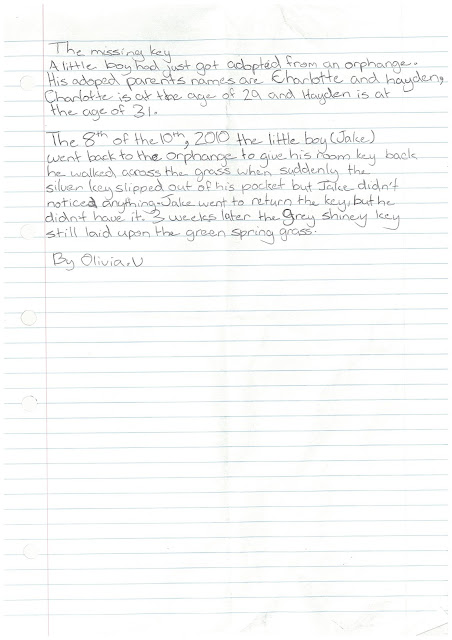 The missing key
A little boy had just got adopted from an orphange.
His adoped parents names are Charlotte and hayden,
Charlotte is at the age of 29 and Hayden is at
the age of 31.
The 8th of the 10th, 2010 the little boy (Jake)
went back to the orphange to give his room key back
he walked across the grass when suddenly the
silver key slipped out of his pocket but Jake didn't
noticed anything. Jake went to return the key, but he
didnt have it. 3 weeks later the grey shiney key
still laid upon the green spring grass.
By Olivia.U